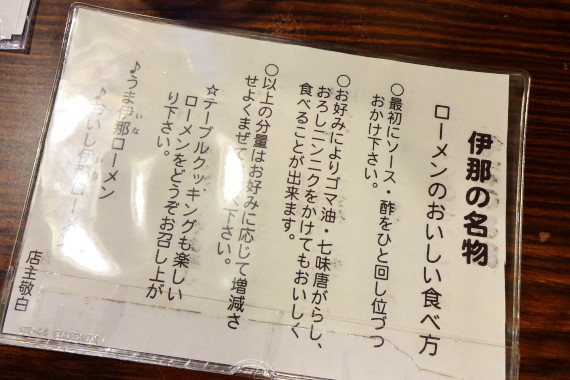 伊那の名物
ローメンのおいしい食べ方
○最初にソース・酢をひと回し位づつ
おかけ下さい。
○お好みによりゴマ油・七味唐がらし、
おろしニンニクをかけてもおいしく
食べることが出来ます。
○以上の分量はお好みに応じて増減さ
せよくまぜて 下さい。
☆テーブルクッキングも楽しい
ローメンをどうぞお召し上が
り下さい。
♪うま伊那ローメン
いな
♪おいし伊那ローメン
いな
店主敬白